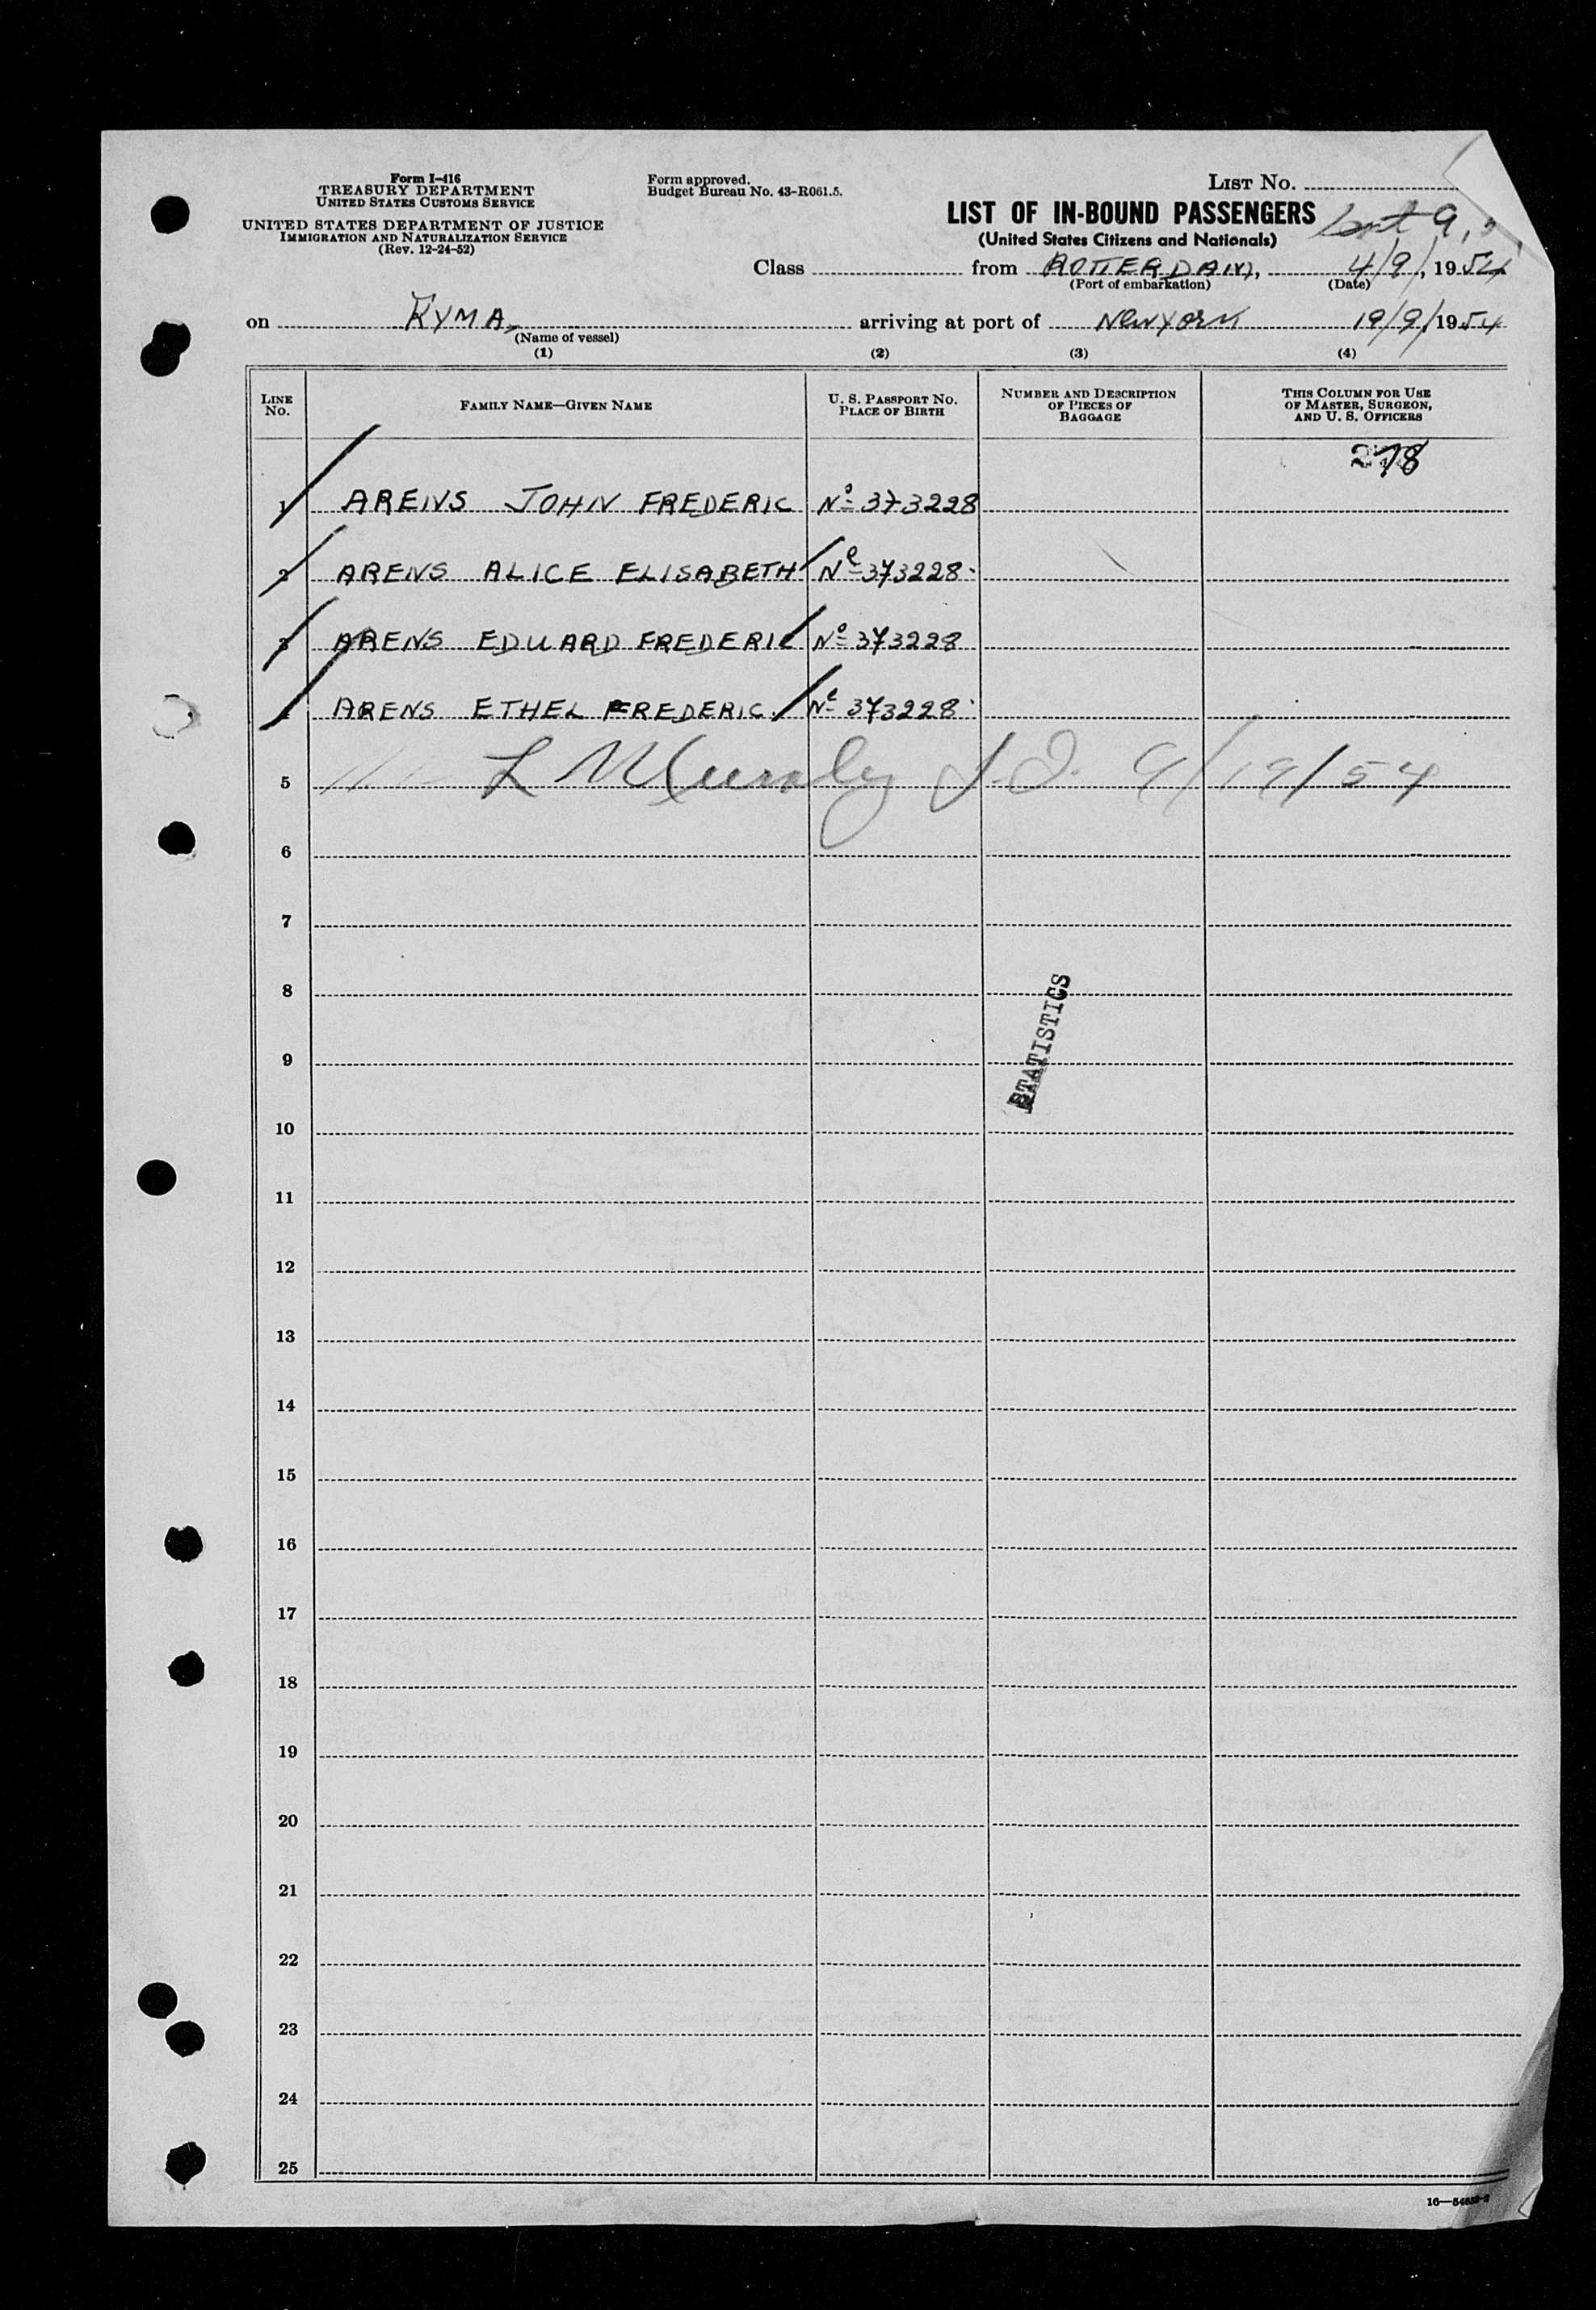 Form I-416
TREASURY DEPARTMENT
UNITED STATES CUSTOMS SERVICE
UNITED STATES DEPARTMENT OF JUSTICE
IMMIGRATION AND NATURALIZATION SERVICE
(Rev. 12-24-52)
Form approved.
Budget Bureau No. 43-R061.5.
LIST NO.
LIST OF IN-BOUND PASSENGERS
(United States Citizens and Nationals)
Class from ROTTERDAM, 4/9, 1954
(Port of embarkation) (Date)
on KYMA, arriving at port of New York 19/9/1954
(Name of vessel)
(1) (2) (3) (4)
LINE NO. FAMILY NAME—GIVEN NAME U. S. PASSPORT NO. PLACE OF BIRTH NUMBER AND DESCRIPTION OF PIECES OF BAGGAGE THIS COLUMN FOR USE OF MASTER, SURGEON, AND U. S. OFFICERS
278
1 ARENS JOHN FREDERIC Nº 373228
2 ARENS ALICE ELISABETH Nº 373228
3 ARENS EDUARD FREDERIC Nº 373228
4 ARENS ETHEL FREDERIC. Nº 373228
5 9/19/54
6
7
8
STATISTICS
9
10
11
12
13
14
15
16
17
18
19
20
21
22
23
24
25